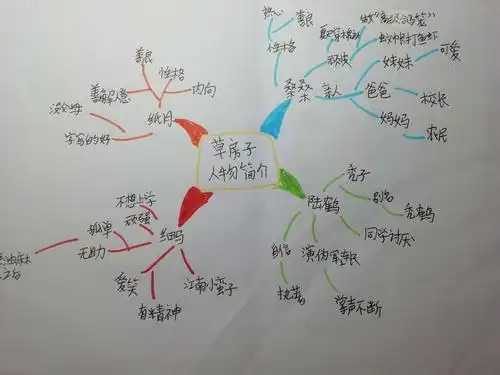 草房子
人物简介
桑桑
性格
热心
善良
顽皮
夏穿棉袄
做"高级鸽笼"
蚊帐打鱼虾
亲人
妹妹
可爱
爸爸
校长
妈妈
农民
陆鹤
秃子
别名
秃鹤
同学讨厌
演伪军连长
掌声不断
执着
细马
不想上学
顽强
孤单
无助
爱笑
有精神
江南小蛮子
纸月
性格
善良
内向
善解人意
没父母
字写的好